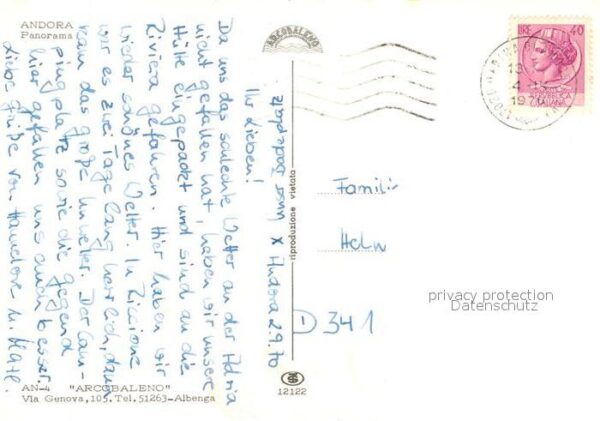 ANDORA
Panorama
ARCOBALENO
LIRE 40
REPUBBLICA
ITALIANA
unser Badeplatz X Andora 2.9.70
Ihr Lieben!
Da uns das schlechte Wetter an der Adria
nicht gefallen hat, haben wir unsere
Hütte eingepackt und sind an die
Riviera gefahren. Hier haben wir
wieder schönes Wetter. In Riccione
war es zwei Tage lang herrlich, dann
kam das große Unwetter. Der Cam-
pingplatz sowie die Gegend
hier gefallen uns auch besser.
Liebe Grüße von Hannelore u.
riproduzione vietata
Famili
Helm
D 341
privacy protection
Datenschutz
AN-4 "ARCOBALENO"
Via Genova, 105. Tel. 51263-Albenga
12122